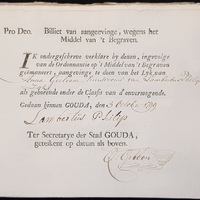 Pro Deo. Billiet van aangeevinge, wegens het
Middel van 't Begraven.
IK ondergeschreve verklare by dezen, ingevolge
van de Ordonnantie op 't Middel van 't Begraven
geëmaneert, aangevinge te doen van het Lyk van
van Lambertus Philip
als gehoorende onder de Classis van d'onvermogende.
Gedaan binnen GOUDA, den 3 October 1799
Lambertus Philip
Ter Secretarye der Stad GOUDA,
geteikent op datum als boven.